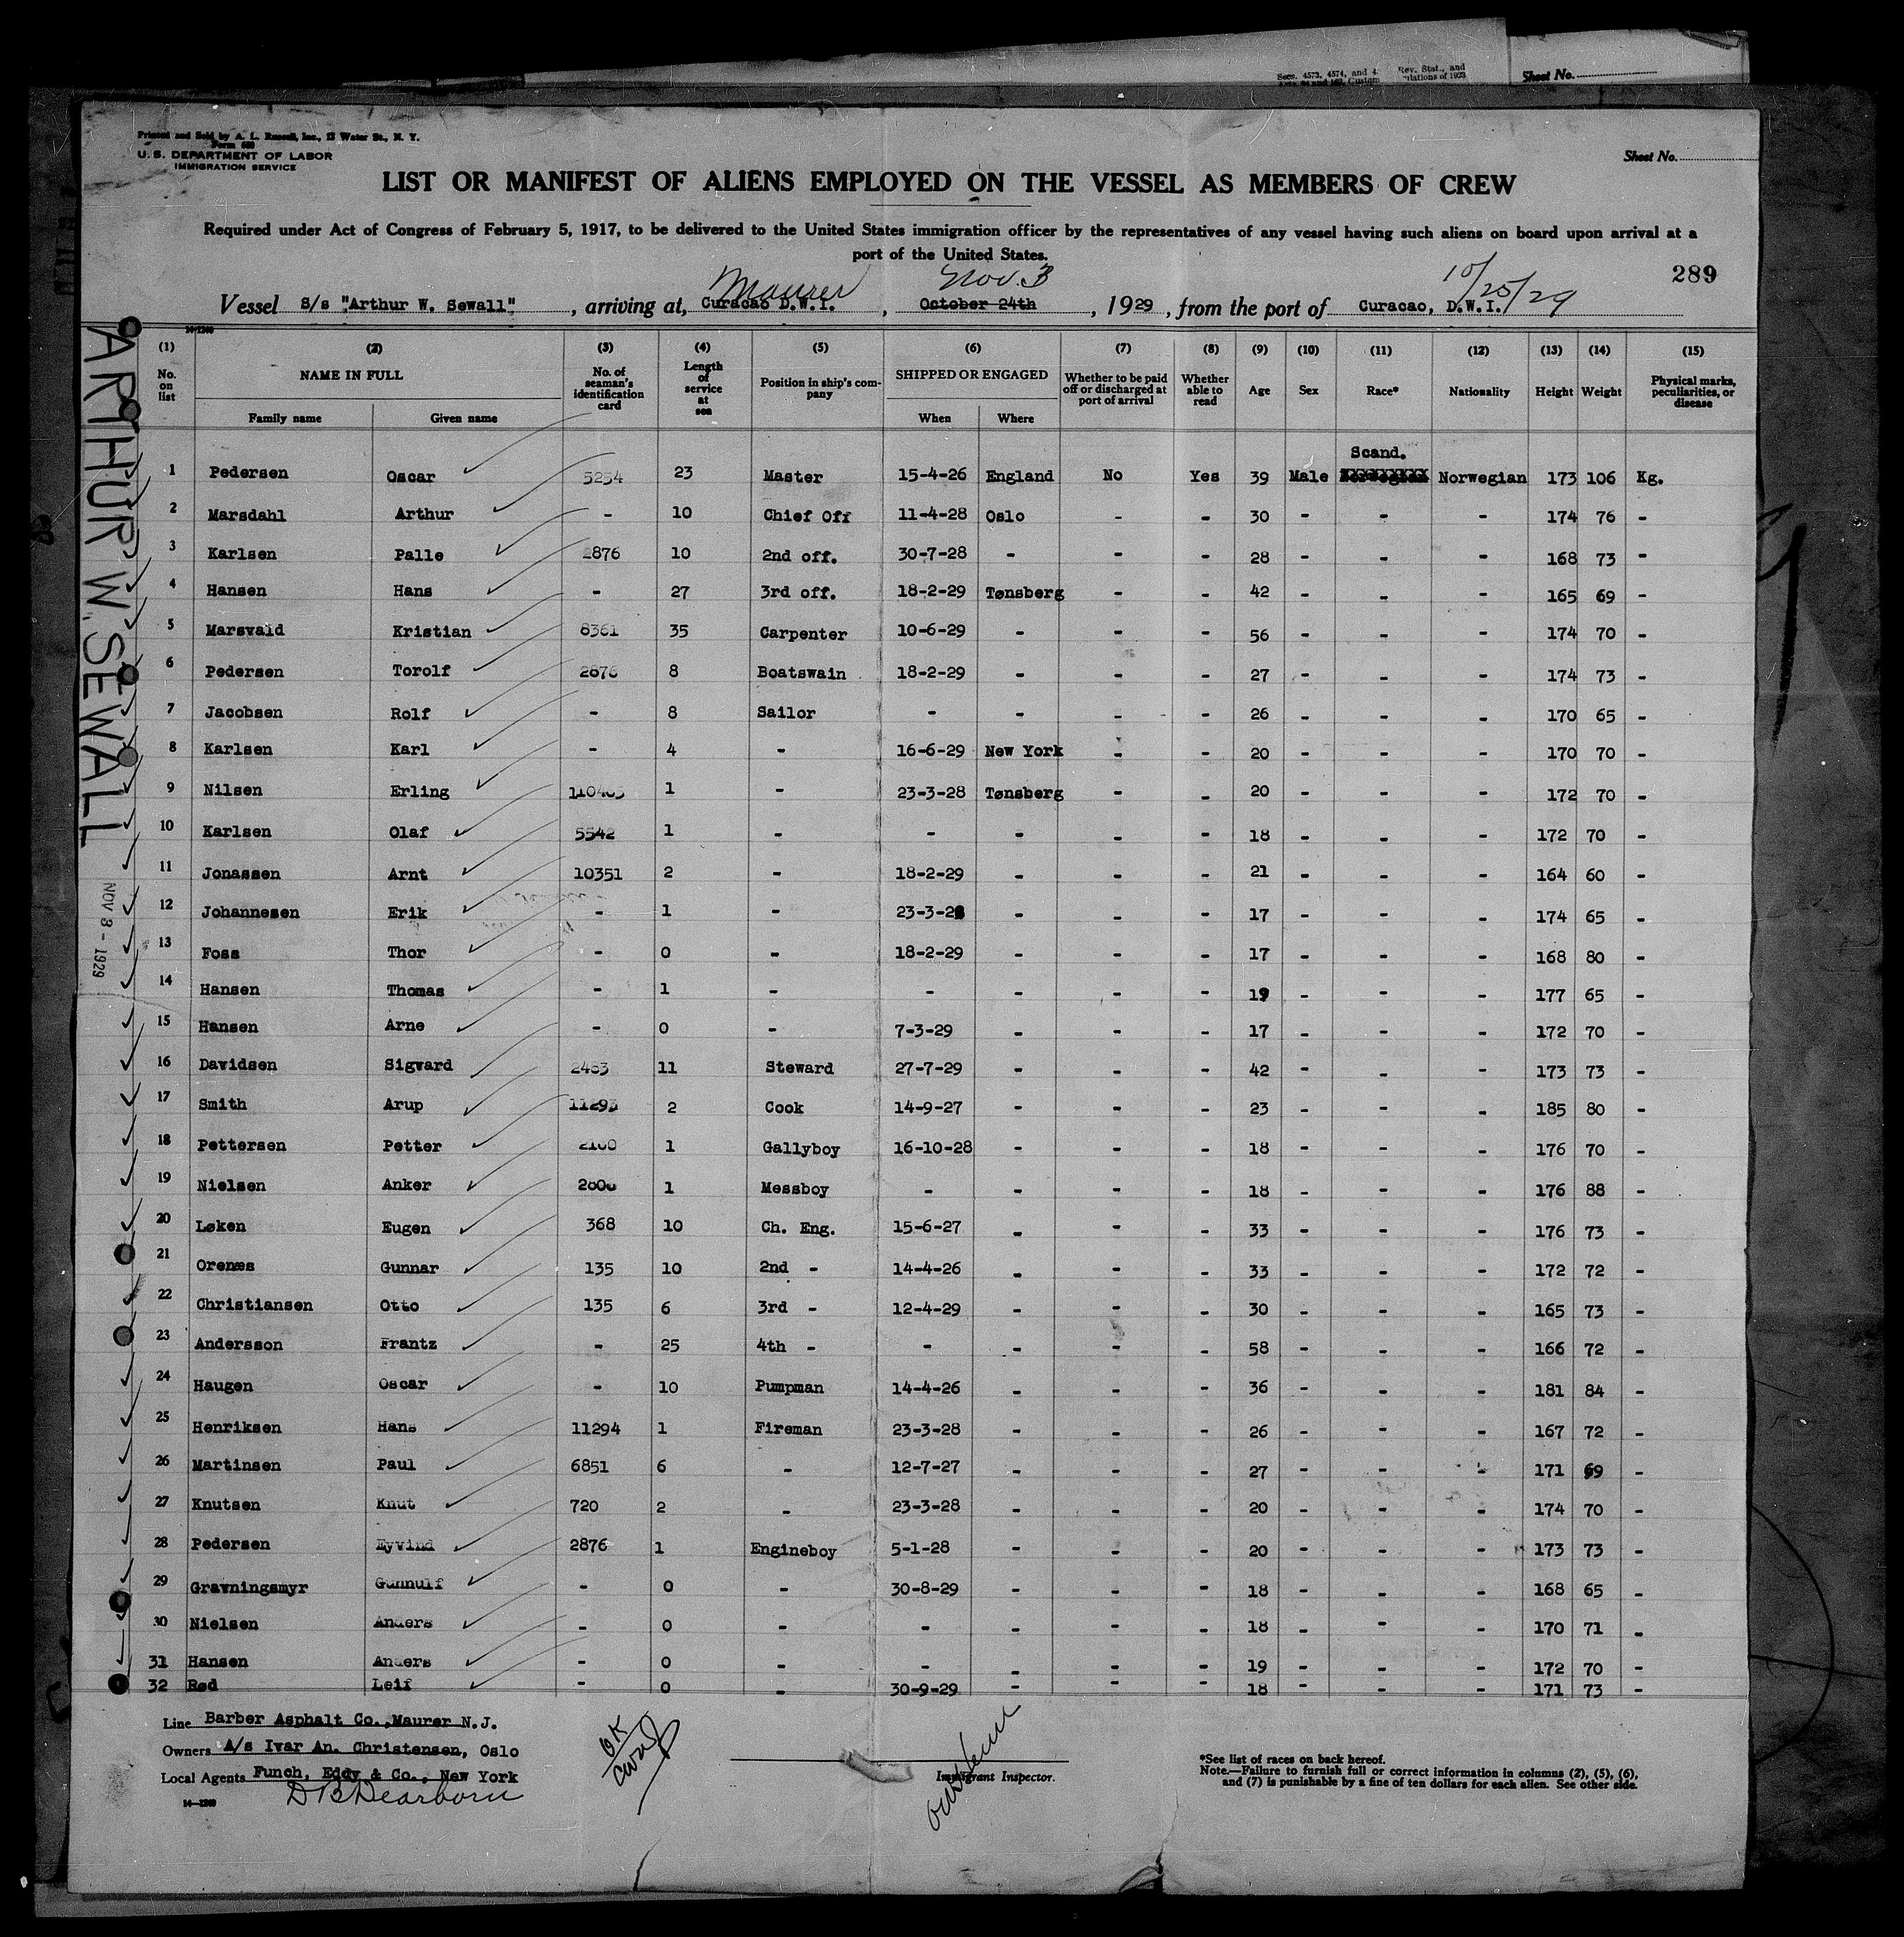 Secs. 4573, 4574, and 4 Rev. Stat., and
Custom ulations of 1923
Sheet No.
Printed and Sold by A. L. Russell, Inc., 13 Water St., N. Y.
Form 680
U. S. DEPARTMENT OF LABOR
IMMIGRATION SERVICE
Sheet No.
LIST OR MANIFEST OF ALIENS EMPLOYED ON THE VESSEL AS MEMBERS OF CREW
Required under Act of Congress of February 5, 1917, to be delivered to the United States immigration officer by the representatives of any vessel having such aliens on board upon arrival at a
port of the United States.
289
Maurer Nov. 3 10/25/29
Vessel S/s "Arthur W. Sewall", arriving at, Curacao D.W.I., October 24th, 1929, from the port of Curacao, D.W.I.
ARTHUR W. SEWALL
NOV 3 - 1929
(1) (2) (3) (4) (5) (6) (7) (8) (9) (10) (11) (12) (13) (14) (15)
No. on list NAME IN FULL No. of seaman's identification card Length of service at sea Position in ship's company SHIPPED OR ENGAGED Whether to be paid off or discharged at port of arrival Whether able to read Age Sex Race* Nationality Height Weight Physical marks, peculiarities, or disease
Family name Given name When Where
Scand.
1 Pedersen Oscar 5254 23 Master 15-4-26 England No Yes 39 Male Norwegian Norwegian 173 106 Kg.
2 Marsdahl Arthur - 10 Chief Off 11-4-28 Oslo - - 30 - - - 174 76 -
3 Karlsen Palle 2876 10 2nd off. 30-7-28 - - - 28 - - - 168 73 -
4 Hansen Hans - 27 3rd off. 18-2-29 Tønsberg - - 42 - - - 165 69 -
5 Marsvald Kristian 8361 35 Carpenter 10-6-29 - - - 56 - - - 174 70 -
6 Pedersen Torolf 2876 8 Boatswain 18-2-29 - - - 27 - - - 174 73 -
7 Jacobsen Rolf - 8 Sailor - - - - 26 - - - 170 65 -
8 Karlsen Karl - 4 - 16-6-29 New York - - 20 - - - 170 70 -
9 Nilsen Erling 1 - 23-3-28 Tønsberg - - 20 - - - 172 70 -
10 Karlsen Olaf 5542 1 - - - - - 18 - - - 172 70 -
11 Jonassen Arnt 10351 2 - 18-2-29 - - - 21 - - - 164 60 -
12 Johannesen Erik - 1 - 23-3-28 - - - 17 - - - 174 65 -
13 Foss Thor - 0 - 18-2-29 - - - 17 - - - 168 80 -
14 Hansen Thomas - 1 - - - - - 19 - - - 177 65 -
15 Hansen Arne - 0 - 7-3-29 - - - 17 - - - 172 70 -
16 Davidsen Sigvard 2483 11 Steward 27-7-29 - - - 42 - - - 173 73 -
17 Smith Arup 11293 2 Cook 14-9-27 - - - 23 - - - 185 80 -
18 Pettersen Petter 1 Gallyboy 16-10-28 - - - 18 - - - 176 70 -
19 Nielsen Anker 1 Messboy - - - - 18 - - - 176 88 -
20 Løken Eugen 368 10 Ch. Eng. 15-6-27 - - - 33 - - - 176 73 -
21 Orenæs Gunnar 135 10 2nd - 14-4-26 - - - 33 - - - 172 72 -
22 Christiansen Otto 135 6 3rd - 12-4-29 - - - 30 - - - 165 73 -
23 Andersson Frantz - 25 4th - - - - - 58 - - - 166 72 -
24 Haugen Oscar - 10 Pumpman 14-4-26 - - - 36 - - - 181 84 -
25 Henriksen Hans 11294 1 Fireman 23-3-28 - - - 26 - - - 167 72 -
26 Martinsen Paul 6851 6 - 12-7-27 - - - 27 - - - 171 69 -
27 Knutsen Knut 720 2 - 23-3-28 - - - 20 - - - 174 70 -
28 Pedersen Eyvind 2876 1 Engineboy 5-1-28 - - - 20 - - - 173 73 -
29 Gravningsmyr Gunnulf - 0 - 30-8-29 - - - 18 - - - 168 65 -
30 Nielsen Anders - 0 - - - - - 18 - - - 170 71 -
31 Hansen Anders - 0 - - - - - 19 - - - 172 70 -
32 Rød Leif - 0 - 30-9-29 - - - 18 - - - 171 73 -
Line Barber Asphalt Co., Maurer N.J.
Owners A/s Ivar An. Christensen, Oslo
Local Agents Funch, Eddy & Co., New York
D B Dearborn
14-1240
OK
Immigrant Inspector.
*See list of races on back hereof.
Note.—Failure to furnish full or correct information in columns (2), (5), (6),
and (7) is punishable by a fine of ten dollars for each alien. See other side.